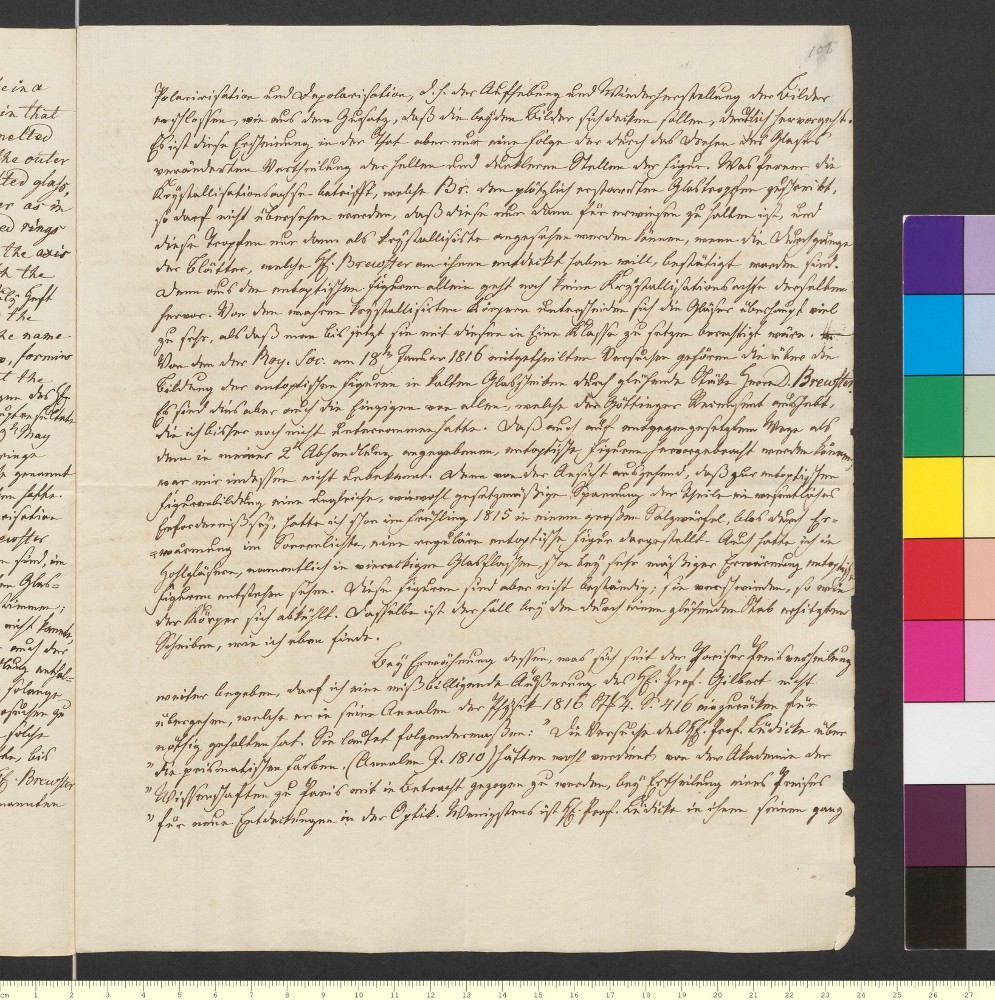 105
Polarisirisation und Depolarisation, d. h. der Aufhebung und Wiederherstellung der Bilder
erschlossen, wie aus dem Zusatz, daß die beyden Bilder sich decken sollen, deutlich hervorgeht.
Es ist diese Erscheinung in der That aber nur eine Folge der durch das Drehen des Glases
veränderten Vertheilung der hellen und dunkleren Stellen der Figur. Was ferner die
Krystallisationsachse betrifft, welche Br. den plötzlich erstarrten Glastropfen zuschreibt,
so darf nicht übersehen werden, daß diese nur dann für erwiesen zu halten ist, und
diese Tropfen nur dann als krystallisirte angesehen werden können, wenn die Durchgänge
der Blätter, welche H. Brewster an ihnen entdeckt haben will, bestätigt worden sind.
Denn aus den entoptischen Figuren allein geht noch keine Krystallisationsachse derselben
hervor. Von den wahren krystallisirten Körpern unterscheiden sich die Gläser überhaupt viel
zu sehr, als daß man bis jetzt sie mit diesen in Eine Klasse zu setzen berechtigt wäre.
Von den der Roy. Soc. am 18ten Januar 1816 mitgetheilten Versuchen gehören die über die
Bildung der entoptischen Figuren in kalten Glasscheiben durch glühende Stäbe Herrn D. Brewster.
Es sind dies aber auch die Einzigen von allen, welche der Göttinger Recensent aushebt,
die ich bisher noch nicht unternommen hatte. Daß auch auf entgegengesetztem Wege als
dem in meiner 2n Abhandlung angegebenen, entoptische Figuren hervorgebracht werden können,
war mir indessen nicht unbekannt. Denn von der Ansicht ausgehend, daß zur entoptischen
Figurenbildung eine ungleiche, wiewohl gesetzmäßige Spannung der Theile ein wesentliches
Erforderniß sey, hatte ich schon im Frühling 1815 in einem großen Salzwürfel, blos durch Er-
wärmung im Sonnenlichte, eine reguläre entoptische Figur dargestellt. Auch hatte ich in
Hohlgläsern, namentlich in viereckigen Glasflaschen, schon bey sehr mäßiger Erwärmung entoptische
Figuren entstehen sehen. Diese Figuren sind aber nicht beständig; sie verschwinden, so wie
der Körper sich abkühlt. Dasselbe ist der Fall bey den durch einen glühenden Stab erhitzten
Scheiben, wie ich eben finde.
Bey Erwähnung dessen, was sich seit der Pariser Preisvertheilung
weiter begeben, darf ich eine mißbilligende Äußerung des H. Prof. Gilbert nicht
übergehen, welche er in seine Annalen der Physik 1816 St. 4. S. 416 einzurücken für
nöthig gehalten hat. Sie lautet folgendermaßen: "Die Versuche des H. Prof. Lüdicke über
"die prismatischen Farben. (Annalen J. 1810) hätten wohl verdient von der Akademie der
"Wissenschaften zu Paris mit in Betracht gezogen zu werden, bey Ertheilung eines Preises
"für neue Entdeckungen in der Optik. Wenigstens ist H. Prof. Lüdicke in ihnen seinen ganz
in that
melted
the outer
ted glass,
er as in
ed rings
the axis
the
the
the name
, forming
t the
May
nicht kannte,
auch der
solange
solche
bis
H. Brewster